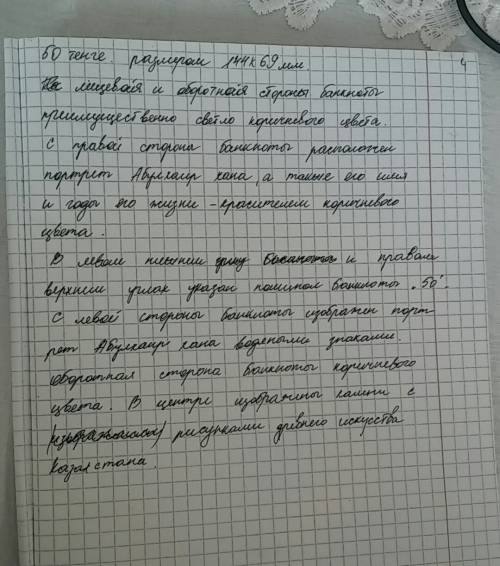 4
50 тенге. размером 144х69 мм.
На лицевая и оборотная стороны банкноты
преимущественно светло коричневого цвета.
С правой стороны банкноты расположен
портрет Абулхаир хана, а также его имя
и годы его жизни - красителем коричневого
цвета.
В левом нижнем углу банкноты и правом
верхнем углах указан номинал банкноты "50".
С левой стороны банкноты изображен порт
рет Абулхаир хана водяными знаками.
Оборотная сторона банкноты коричневого
цвета. В центре изображены камни с
(изображениями) рисунками древнего искусства
Казахстана.